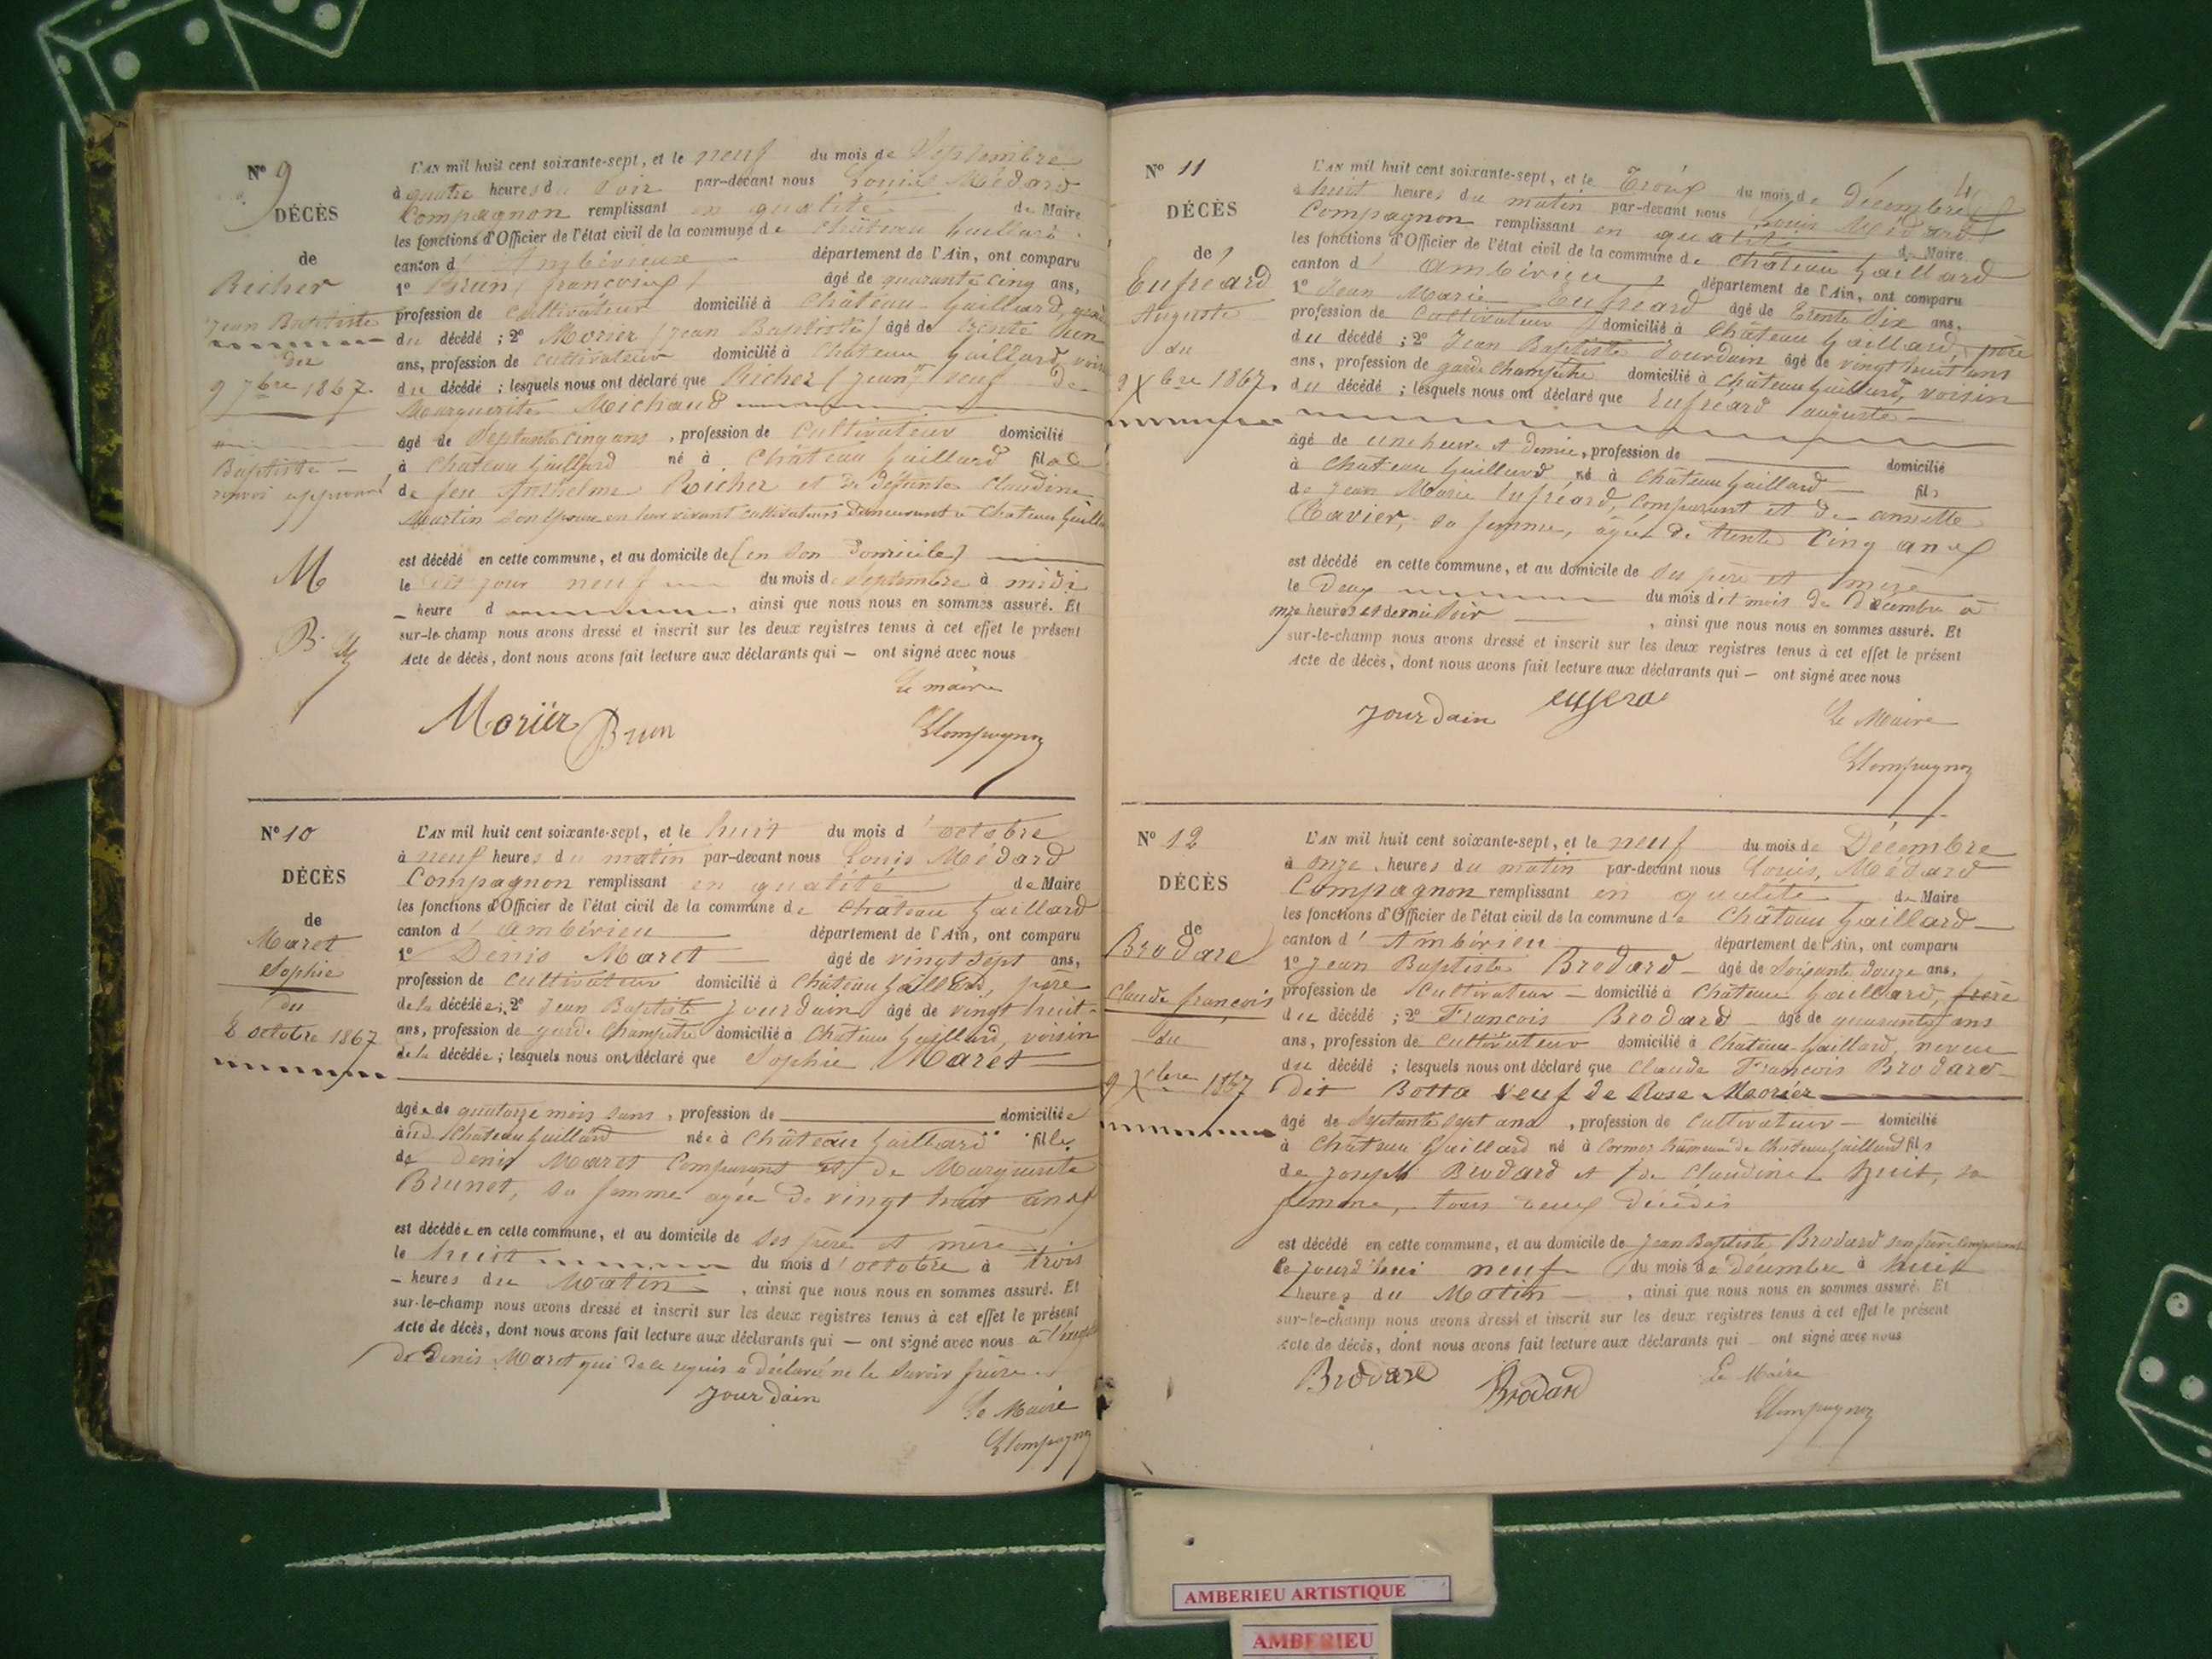 N° 9
DÉCÈS
de
Richer
Jean Baptiste
du
9 7bre 1867.
Baptiste
renvoi approuvé
M
B
L'AN mil huit cent soixante-sept, et le neuf du mois de Septembre
à quatre heures du Soir par-devant nous Louis Médard
Compagnon remplissant en qualité de Maire
les fonctions d'Officier de l'état civil de la commune de Château Gaillard
canton d' Ambérieux département de l'Ain, ont comparu
1° Brun (françois) âgé de quarante cinq ans,
profession de cultivateur domicilié à Château Gaillard,
du décédé ; 2° Morier (Jean Baptiste) âgé de trente
ans, profession de cultivateur domicilié à Château Gaillard, voisin
du décédé ; lesquels nous ont déclaré que Richer (Jean) veuf de
Marguerite Michaud
âgé de Septante cinq ans, profession de Cultivateur domicilié
à Château Gaillard né à Château Gaillard fils
de feu Anthelme Richer et de défunte Claudine
Martin son épouse en leur vivant cultivateurs demeurant à Château Gaillard
est décédé en cette commune, et au domicile de (en son domicile)
le dit jour neuf du mois de Septembre à midi
heure d , ainsi que nous nous en sommes assuré. Et
sur-le-champ nous avons dressé et inscrit sur les deux registres tenus à cet effet le présent
Acte de décès, dont nous avons fait lecture aux déclarants qui — ont signé avec nous
Le maire
Morier Brun LCompagnon
N° 10
DÉCÈS
de
Maret
Sophie
du
8 octobre 1867
L'AN mil huit cent soixante-sept, et le huit du mois d'octobre
à neuf heures du matin par-devant nous Louis Médard
Compagnon remplissant en qualité de Maire
les fonctions d'Officier de l'état civil de la commune de Château Gaillard
canton d' Ambérieu département de l'Ain, ont comparu
1° Denis Maret âgé de vingt sept ans,
profession de cultivateur domicilié à Château Gaillard, père
de la décédée ; 2° Jean Baptiste Jourdain âgé de vingt huit
ans, profession de garde Champêtre domicilié à Château Gaillard, voisin
de la décédée ; lesquels nous ont déclaré que Sophie Maret
âgée de quatorze mois , profession de domiciliée
à Château Gaillard née à Château Gaillard fille
de Denis Maret Comparant et de Marguerite
Brunet, sa femme agée de vingt huit ans
est décédée en cette commune, et au domicile de ses père et mère
le huit du mois d'octobre à trois
heures du Matin , ainsi que nous nous en sommes assuré. Et
sur-le-champ nous avons dressé et inscrit sur les deux registres tenus à cet effet le présent
Acte de décès, dont nous avons fait lecture aux déclarants qui — ont signé avec nous à
de Denis Maret qui de ce requis a déclaré ne le savoir faire
Jourdain
Le Maire
LCompagnon
N° 11
DÉCÈS
de
Eufréard
Auguste
du
Xbre 1867.
L'AN mil huit cent soixante-sept, et le Trois du mois de décembre
à huit heures du matin par-devant nous Louis Médard
Compagnon remplissant en qualité de Maire
les fonctions d'Officier de l'état civil de la commune de Château Gaillard
canton d' Ambérieu département de l'Ain, ont comparu
1° Jean Marie Eufréard âgé de Trente Six ans,
profession de Cultivateur domicilié à Château Gaillard, père
du décédé ; 2° Jean Baptiste Jourdain âgé de vingt huit ans
ans, profession de garde Champêtre domicilié à Château Gaillard, voisin
du décédé ; lesquels nous ont déclaré que Eufréard auguste
âgé de une heure et demie, profession de domicilié
à Château Gaillard né à Château Gaillard fils
de Jean Marie Eufréard, Comparant et de annette
Cavier, sa femme, âgée de trente Cinq ans
est décédé en cette commune, et au domicile de ses père et mère
le Deux du mois dit mois de Décembre à
onze heures et demie Soir , ainsi que nous nous en sommes assuré. Et
sur-le-champ nous avons dressé et inscrit sur les deux registres tenus à cet effet le présent
Acte de décès, dont nous avons fait lecture aux déclarants qui — ont signé avec nous
Jourdain Le Maire
LCompagnon
N° 12
DÉCÈS
de
Brodard
Claude françois
du
9 Xbre 1867
L'AN mil huit cent soixante-sept, et le neuf du mois de Décembre
à onze heures du matin par-devant nous Louis, Médard
Compagnon remplissant en qualité de Maire
les fonctions d'Officier de l'état civil de la commune de Château Gaillard
canton d' Ambérieu département de l'Ain, ont comparu
1° Jean Baptiste Brodard âgé de Soixante douze ans,
profession de Cultivateur domicilié à Château Gaillard, frère
du décédé ; 2° François Brodard âgé de quarante ans
ans, profession de Cultivateur domicilié à Château Gaillard, neveu
du décédé ; lesquels nous ont déclaré que Claude François Brodard
dit Botta Veuf de Rose Morier
âgé de Septante sept ans , profession de Cultivateur domicilié
à Château Gaillard né à Cormoz hameau de Château Gaillard fils
de Joseph Brodard et de Claudine , sa
femme, tous deux décédés
est décédé en cette commune, et au domicile de Jean Baptiste Brodard son frère Comparant
le jourd'hui neuf du mois de décembre à huit
heures du Matin , ainsi que nous nous en sommes assuré. Et
sur-le-champ nous avons dressé et inscrit sur les deux registres tenus à cet effet le présent
Acte de décès, dont nous avons fait lecture aux déclarants qui ont signé avec nous
Brodard Brodard Le Maire
LCompagnon
AMBERIEU ARTISTIQUE
AMBERIEU